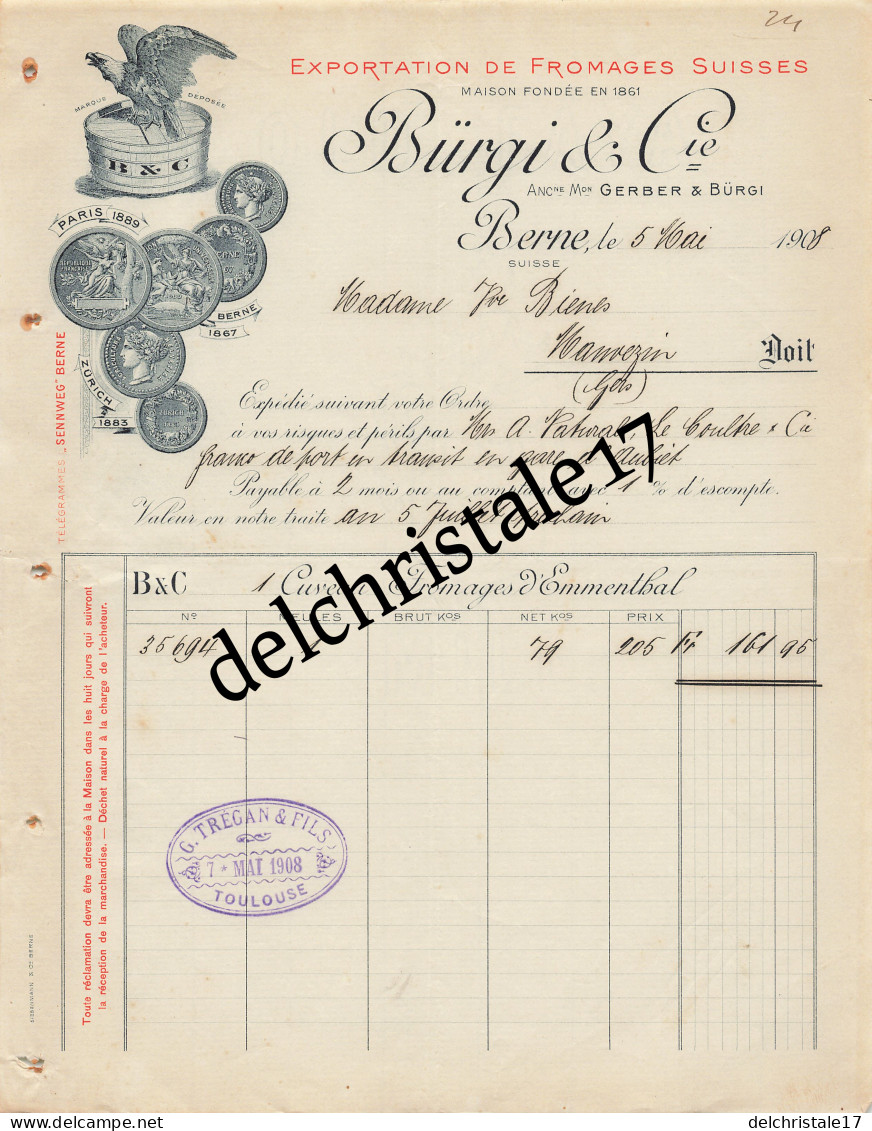 24
EXPORTATION DE FROMAGES SUISSES
MAISON FONDÉE EN 1861
Bürgi & Cie
ANCNE MON GERBER & BÜRGI
MARQUE DÉPOSÉE
B & C
PARIS 1889
BERNE
1867
ZÜRICH
1883
Berne, le 5 Mai 1908
SUISSE
Madame Vve Biénès
Mauvezin Doit
(Gers)
TÉLÉGRAMMES „SENNWEG" BERNE
Expédié suivant votre Ordre
à vos risques et périls par Mrs A. Natural, Le Coultre & Cie
franco de port en transit en gare d'Aubiet
Payable à 2 mois ou au comptant avec 1 % d'escompte.
Valeur en notre traite au 5 Juillet prochain
delchristale17
B&C 1 Cuveau Fromages d'Emmenthal
No MEULES BRUT KOS NET KOS PRIX
35694 79 205 Fr 161 95
Toute réclamation devra être adressée à la Maison dans les huit jours qui suivront
la réception de la marchandise. — Déchet naturel à la charge de l'acheteur.
G. TRÉGAN & FILS
7 * MAI 1908
TOULOUSE
delcampe.net
delchristale17